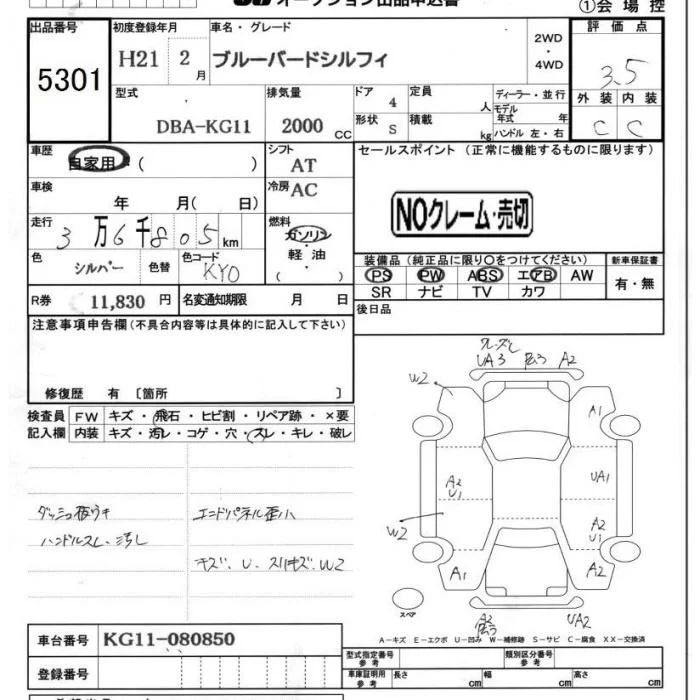 オークション出品申込書
①会場控
出品番号 初度登録年月 車名・グレード 評価点
5301 H21 2月 ブルーバードシルフィ 2WD・4WD 3.5
型式 排気量 ドア 4 定員 人 ディーラー・並行 外装 内装
DBA-KG11 2000cc 形状 S 積載 kg モデル年式 年 ハンドル 左・右 C C
車歴 自家用・( ) シフト AT セールスポイント(正常に機能するものに限ります)
車検 年 月( 日) 冷房 AC
NOクレーム・売切
走行 3万6千805km 燃料 ガソリン
軽・油
( )
色 シルバー 色替 色コード KY0
装備品(純正品に限り○をつけてください) 新車保証書
PS PW ABS エアB AW 有・無
SR ナビ TV カワ
R券 11,830円 名変通知期限 月 日 後日品
注意事項申告欄(不具合内容等は具体的に記入して下さい)
修復歴 有〔箇所 〕
検査員 FW キズ・飛石・ヒビ割・リペア跡・×要
記入欄 内装 キズ・汚レ・コゲ・穴・スレ・キレ・破レ
UA3 A2
W2
A1
A2
U1
UA1
W2
A2
U1
A1 A2
スペア
A2 UA2
ハンドルスレ、汚レ
エンドパネル歪小
キズ、U、スリキズ、W2
A-キズ E-エクボ U-凹み W-補修跡 S-サビ C-腐食 XX-交換済
車台番号 KG11-080850
型式指定番号 参考 類別区分番号 参考
登録番号 車庫証明用 参考 長さ cm 幅 cm 高さ cm